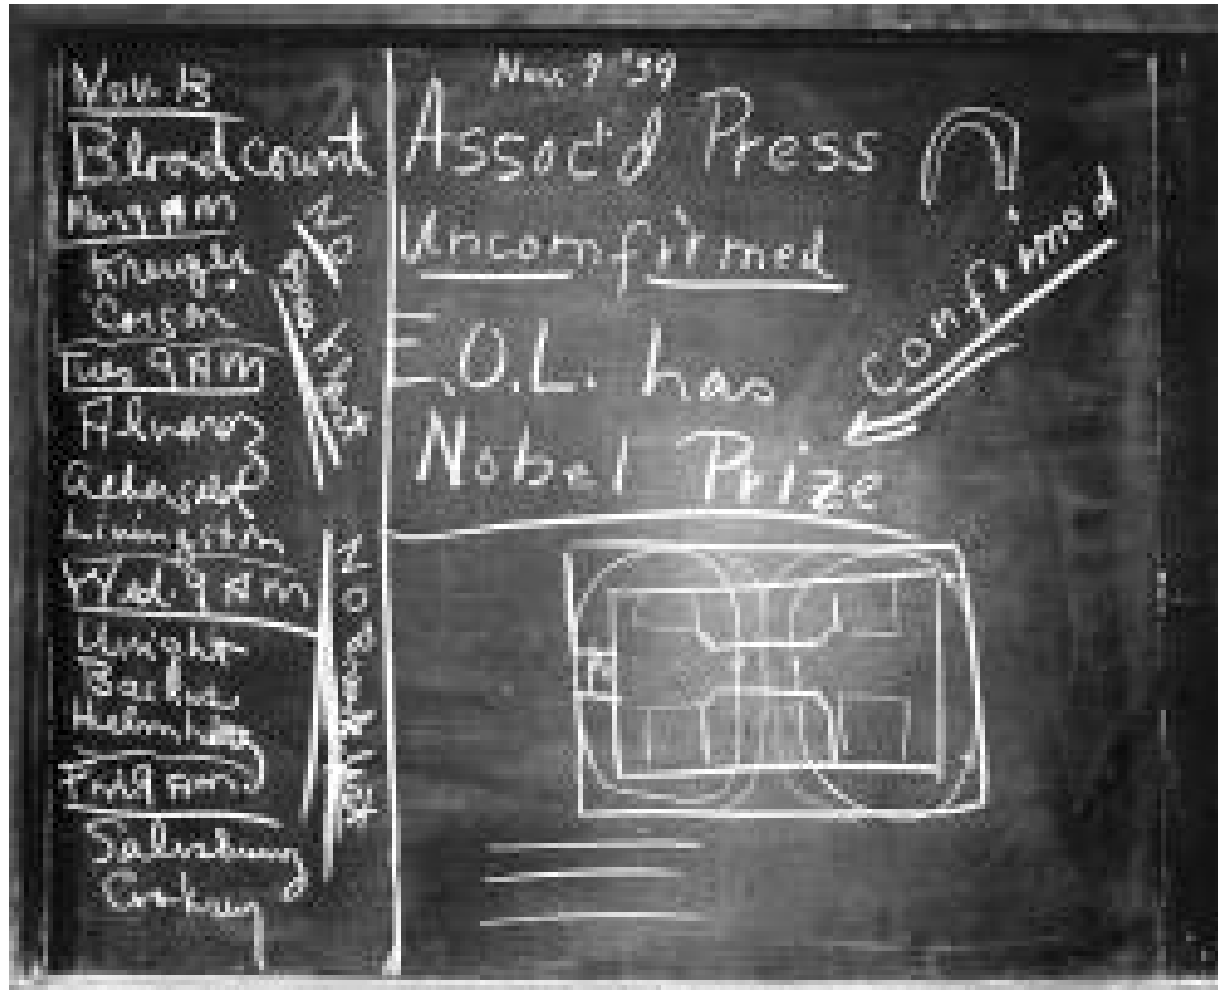 Nov. 13
Blood count
Mon 9 AM
Kruger
Corson
Tues 9 AM
Alvarez
Aebersold
Livingston
Wed. 9 AM
Wright
Backus
Helmholz
Fri 9 AM
Salisbury
Cooksey
No Breakfast
No Breakfast
Nov. 9 '39
Assoc'd Press
Unconfirmed
E.O.L. has
Nobel Prize
Confirmed